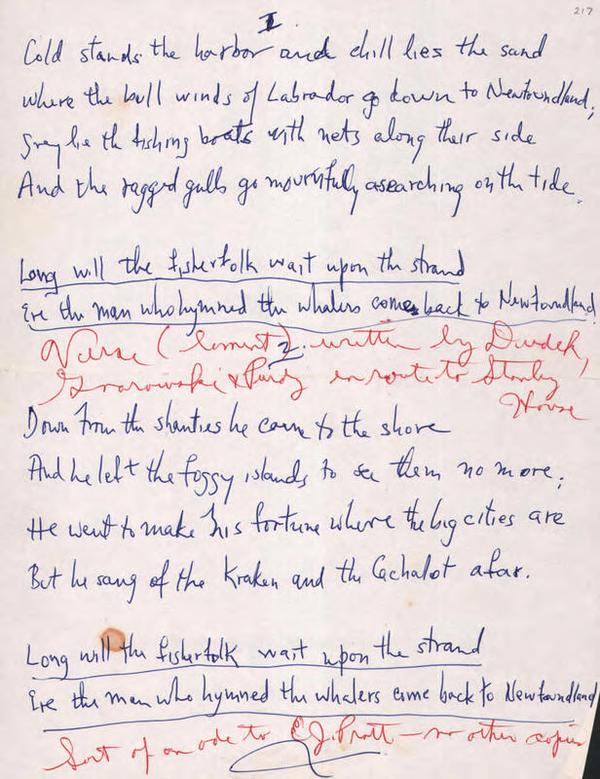 217
I.
Cold stands the harbor and chill lies the sand
where the bull winds of Labrador go down to Newfoundland;
Grey lie th fishing boats with nets along their side
And the ragged gulls go mournfully asearching on th tide.
Long will the fisherfolk wait upon th strand
Ere the man who hymned the whalers comes back to Newfoundland.
Verse (lament) written by Dudek,
2.
Gnarowski & Purdy en route to Stanley
House
Down from th shanties he came to the shore
And he left the foggy islands to see them no more;
He went to make his fortune where the big cities are
But he sang of the Kraken and the Cachalot afar.
Long will the fisherfolk wait upon the strand
Ere the man who hymned the whalers come back to Newfoundland
Sort of an ode to E.J. Pratt – no other copies